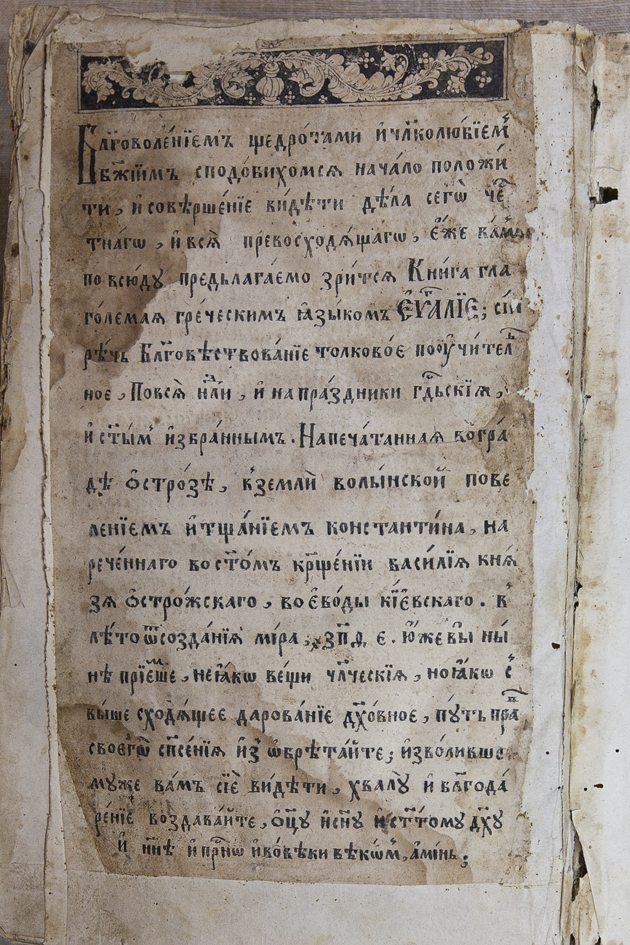 Бл҃говоле́нїемъ щедро́тами и҆ чл҃колю́бїемъ
бж҃їимъ сподо́вихомсѧ нача́ло положи́
ти, и҆ совѣрше́нїе ви́дѣти дѣ́ла сегѡ̀ че
тна́гѡ, и҆ всѧ̀ превосходѧ́щагѡ, є҆́же ва́мъ
повсю́ду предьлага́емо зри́тсѧ Кни́га гла
го́лемаѧ гре́ческимъ ꙗ҆зы́комъ Є҆ѵⷢ҇алїе; сїи
рѣ́чь Бл҃говѣ́ствованїе толко́вое поѹчи́тел
ное, По всѧ̀ нⷣли, и҆ на пра́здники гдⷭ҇ьскїѧ,
и҆ ст҃ы́мъ и҆збра́ннымъ. Напеча́танная во гра́
дѣ ѻ҆стро́зѣ, в̾ землѝ волы́нской пове
ле́нїемъ и҆ тща́нїемъ константи́на, на
рече́ннаго во ст҃о́мъ крⷳ҇ще́нїи васи́лїѧ кнѧ́
зѧ ѻ҆стро́жскаго, воево́ды кі́евскаго. в̾
лѣ́то ѿ созда́нїѧ мі́ра, ҂зпд є. Ю҆́же вы̀ ны́
нѣ прїе́мше, не ꙗ҆́кѡ ве́щи чл҃ческїѧ, но ꙗ҆́кѡ с̾
вы́ше сходѧ́щее дарова́нїе дх҃о́вное, пу́ть пра
своегѡ̀ сп҃се́нїѧ и҆з̾ѡбрѣта́йте; и҆зво́лившо
муже ва́мъ сїѐ ви́дѣти, хвалу̀ и҆ бл҃года
ре́нїе воздава́йте, ѻ҆ц҃у и҆ сн҃у и҆ ст҃ому дх҃у
и҆ нн҃ѣ и҆ при́снѡ и҆ во вѣ́ки вѣкѡ́мъ, а҆ми́нь;